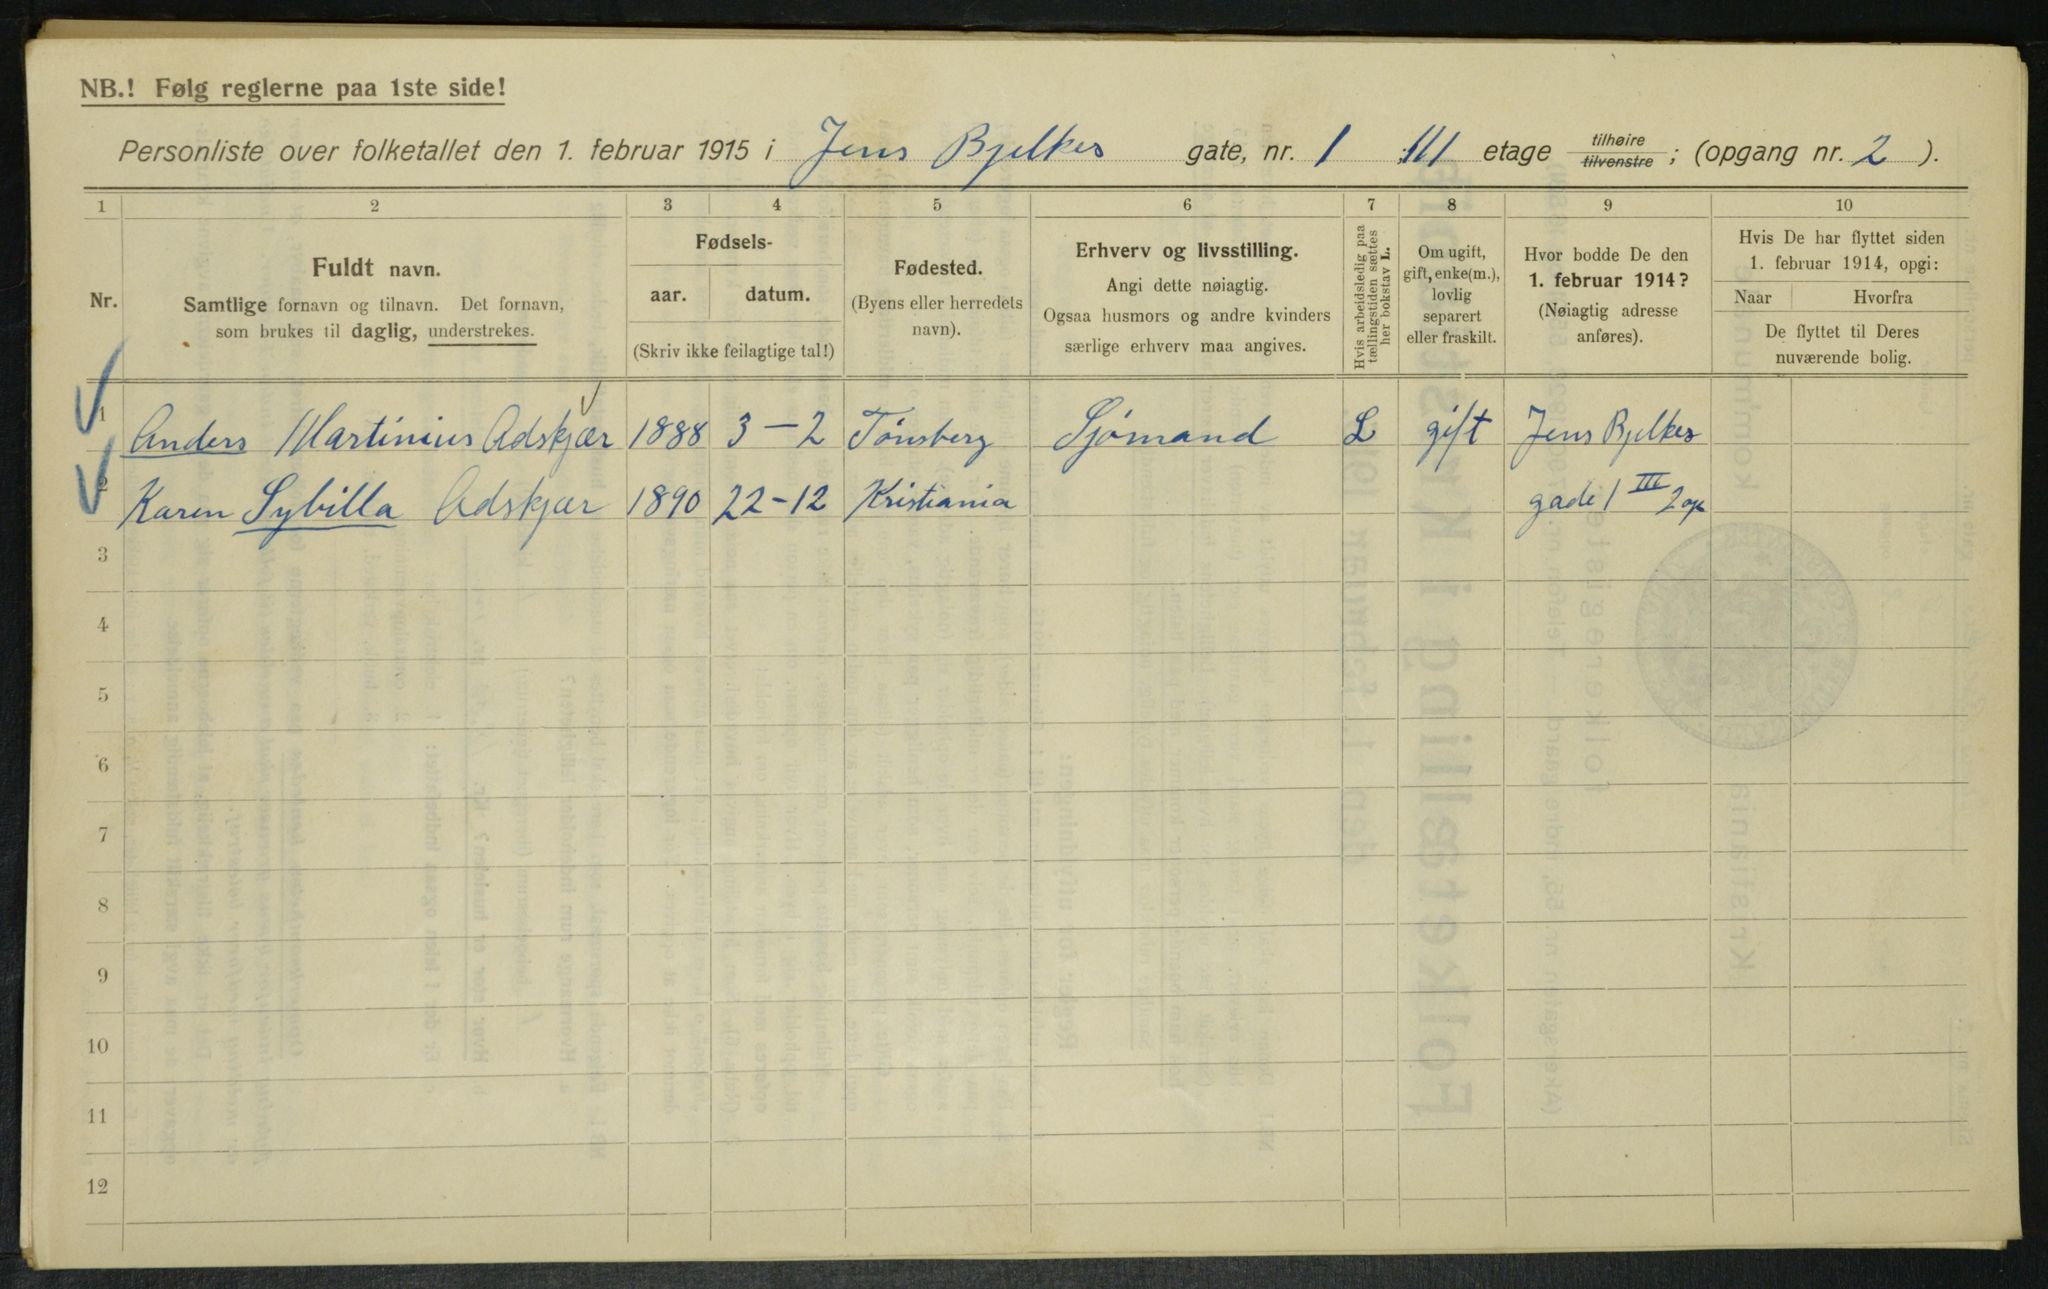 NB.! Følg reglerne paa 1ste side!
Personliste over folketallet den 1. februar 1915 i Jens Bjelkes gate, nr. 1 III etage tilhøire tilvenstre ; (opgang nr. 2 ).
1 2 3 4 5 6 7 8 9 10
Nr.
Fuldt navn.
Samtlige fornavn og tilnavn. Det fornavn,
som brukes til daglig, understrekes.
Fødsels-
aar. datum.
(Skriv ikke feilagtige tal!)
Fødested.
(Byens eller herredets
navn).
Erhverv og livsstilling.
Angi dette nøiagtig.
Ogsaa husmors og andre kvinders
særlige erhverv maa angives.
Hvis arbeidsledig paa
tællingstiden sættes
her bokstav L.
Om ugift,
gift, enke(m.),
lovlig
separert
eller fraskilt.
Hvor bodde De den
1. februar 1914?
(Nøiagtig adresse
anføres).
Hvis De har flyttet siden
1. februar 1914, opgi:
Naar Hvorfra
De flyttet til Deres
nuværende bolig.
1 Anders Martinius Adskjær 1888 3-2 Tønsberg Sjömand L gift Jens Bjelkes
2 Karen Sybilla Adskjær 1890 22-12 Kristiania gade 1 III 2 op
3
4
5
6
7
8
9
10
11
12